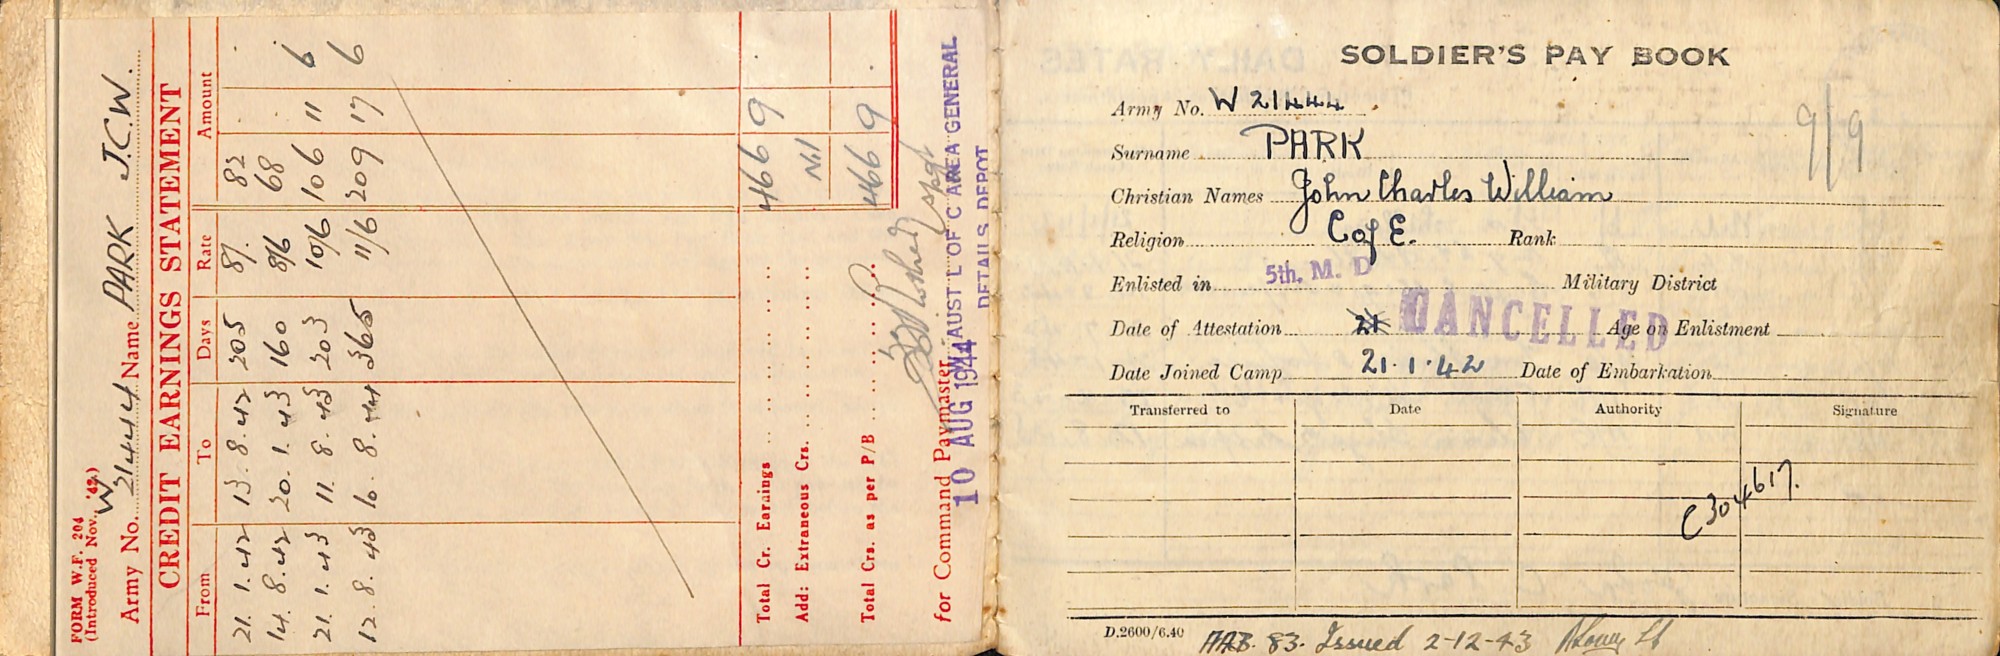 FORM W.F. 204
(Introduced Nov. '42)
Army No. W 21444 Name PARK J.C.W.
CREDIT EARNINGS STATEMENT
From To Days Rate Amount
21. 1. 42 13. 8. 42 205 8/. 82 . .
14. 8. 42 20. 1. 43 160 8/6 68 . .
21. 1. 43 11. 8. 43 203 10/6 106 11 6
12. 8. 43 10. 8. 44 365 11/6 209 17 6
Total Cr. Earnings 466 9
Add: Extraneous Crs. Nil
Total Crs. as per P/B 466 9 .
Sgt
for Command Paymaster
W. AUST L OF C AREA GENERAL
10 AUG 1944
DETAILS DEPOT
SOLDIER'S PAY BOOK
Army No. W 21444
9/9
Surname PARK
Christian Names John Charles William
Religion C of E. Rank
Enlisted in 5th. M. D Military District
Date of Attestation 21 CANCELLED Age on Enlistment
Date Joined Camp 21.1.42 Date of Embarkation
Transferred to Date Authority Signature
C304617.
D.2600/6.40 AAB. 83. Issued 2-12-43 Lt